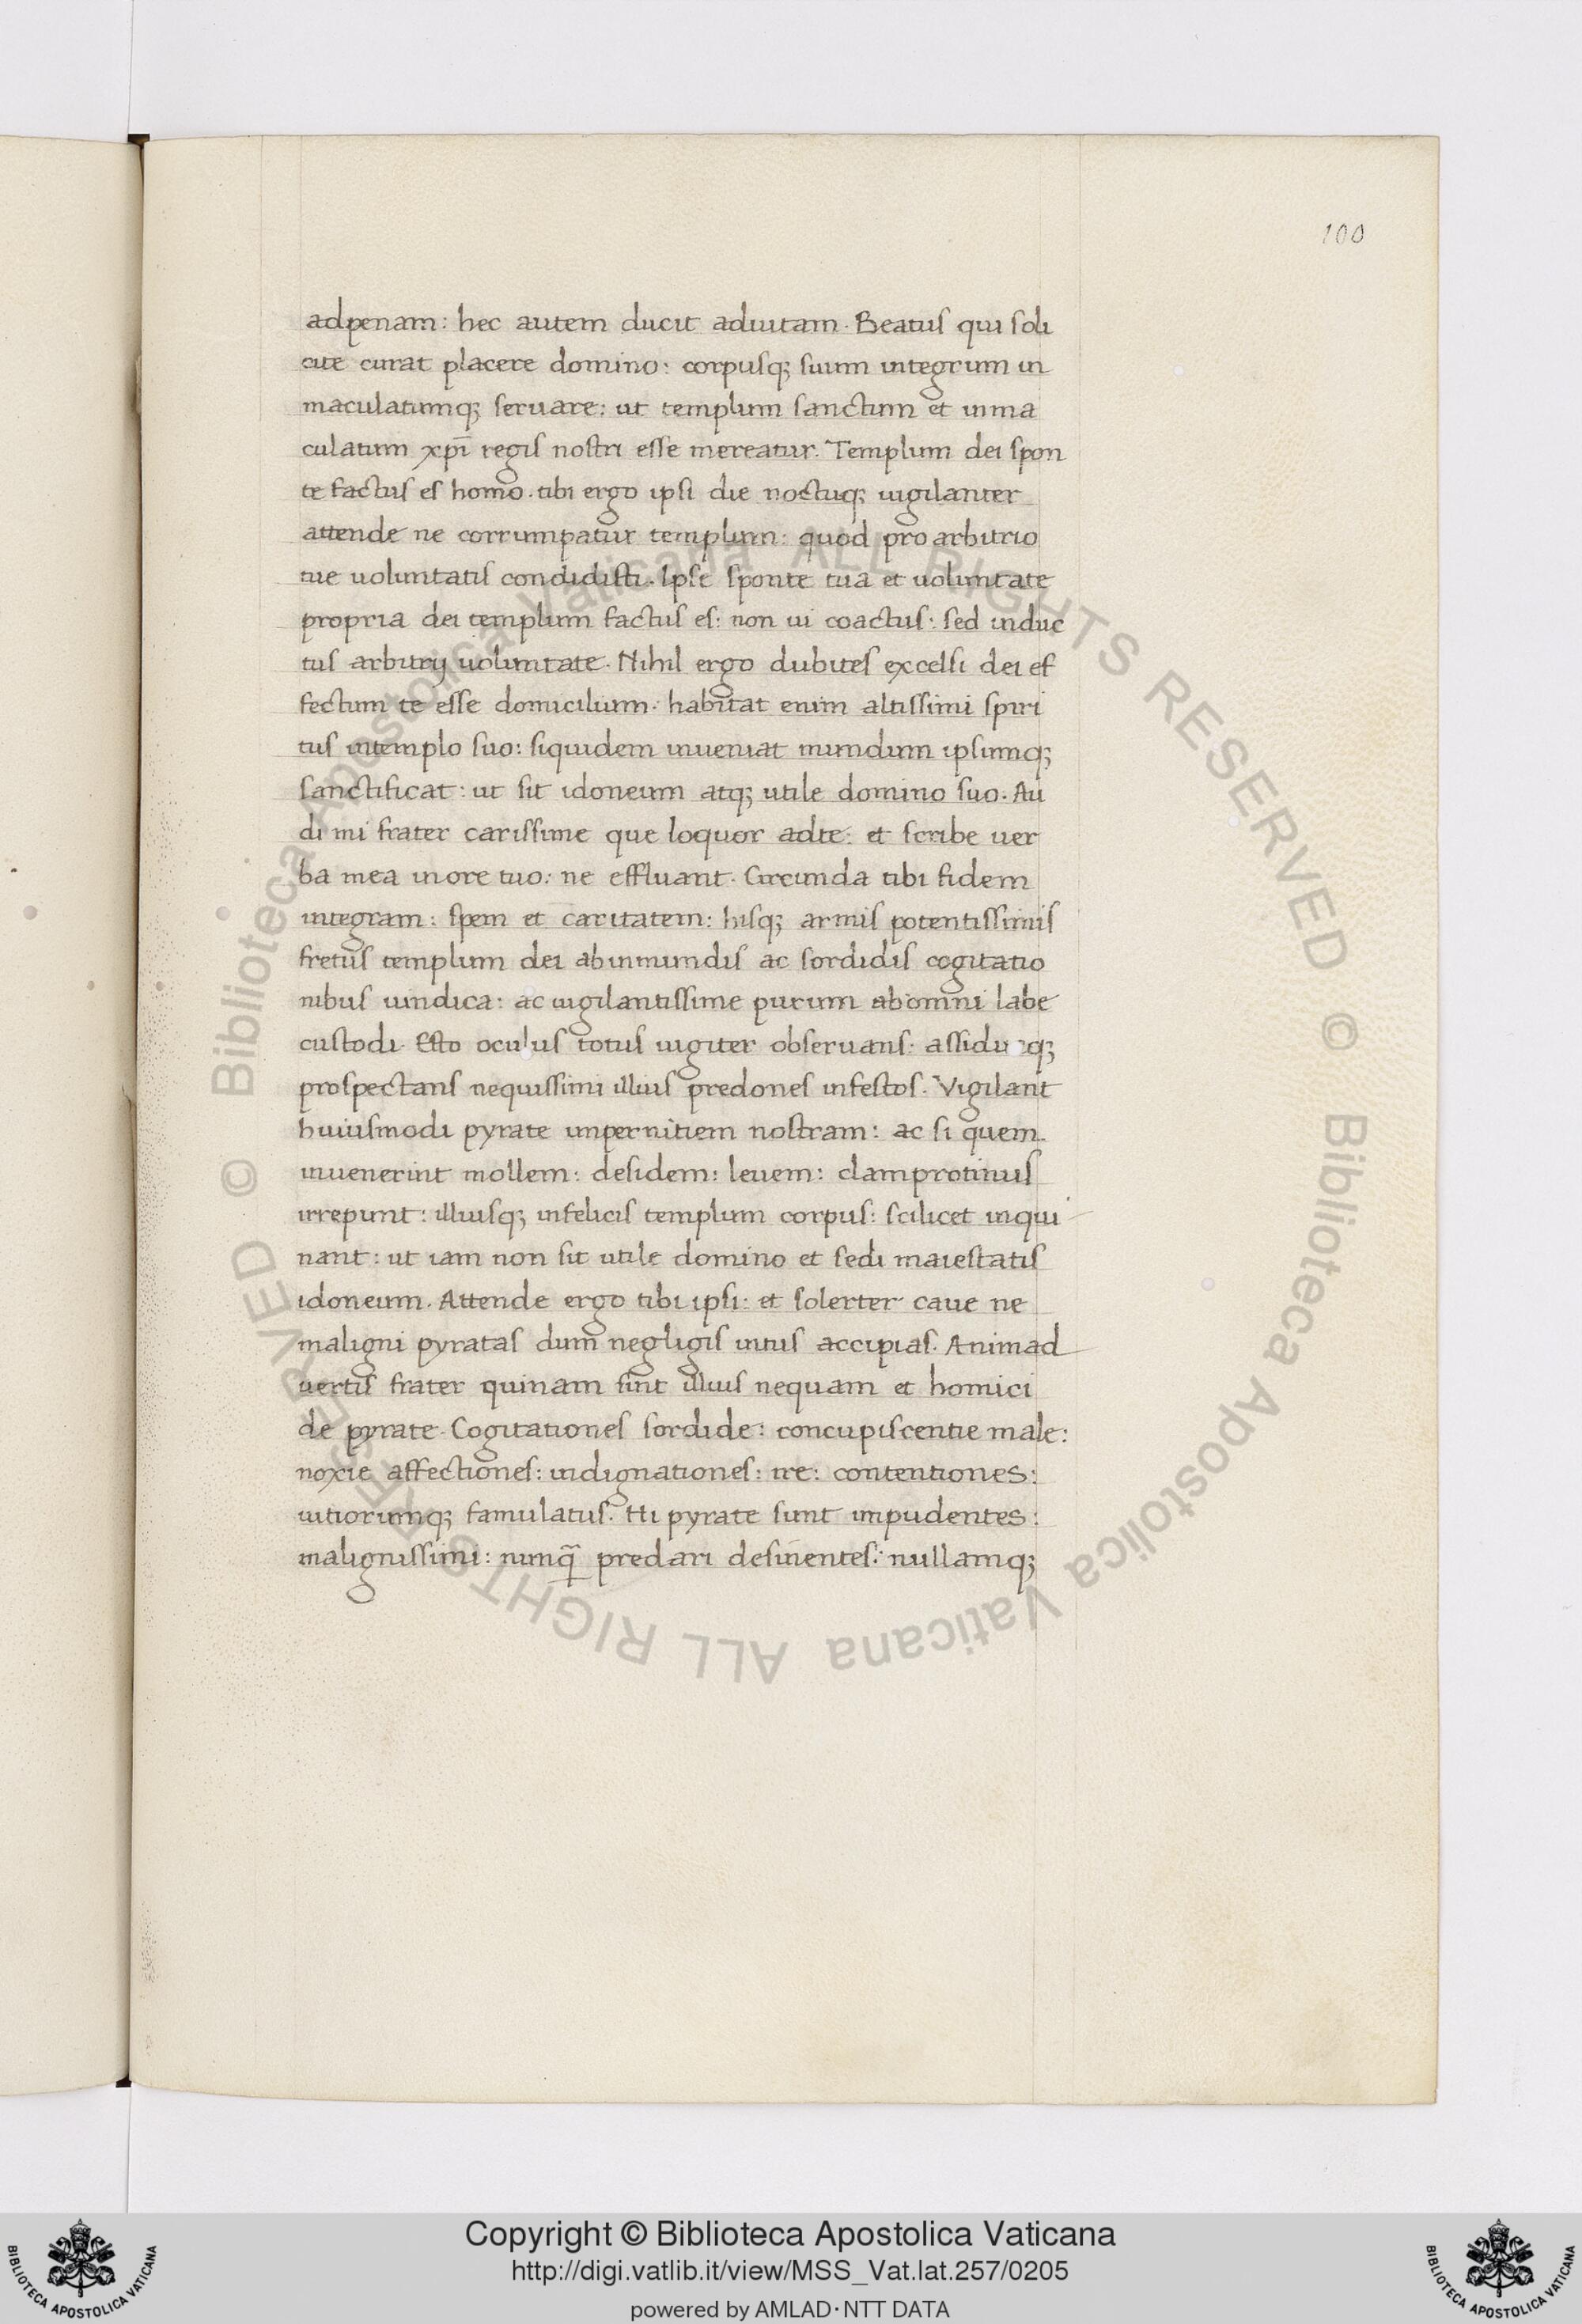 100
adpenam: hec autem ducit aduitam. Beatus qui soli
cite curat placere domino: corpusq; suum integrum in
maculatumq; seruare: ut templum sanctum et inma
culatum xp̄i regis nostri esse mereatur. Templum dei spon
te factus es homo. tibi ergo ipsi die noctuq; uigilanter
attende ne corrumpatur templum: quod pro arbitrio
tue uoluntatis condidisti. Ipse sponte tua et uoluntate
propria dei templum factus es: non ui coactus: sed induc
tus arbitrij uoluntate. Nihil ergo dubites excelsi dei ef
fectum te esse domicilium. habitat enim altissimi spiri
tus intemplo suo: siquidem inueniat mundum ipsumq;
sanctificat: ut sit idoneum atq; utile domino suo. Au
di mi frater carissime que loquor adte: et scribe uer
ba mea inore tuo: ne effluant. Circunda tibi fidem
integram: spem et caritatem: hisq; armis potentissimis
fretus templum dei abinmundis ac sordidis cogitatio
nibus uindica: ac uigilantissime purum abomni labe
custodi. Esto oculus totus iugiter obseruans: q;
prospectans nequissimi illius predones infestos. Vigilant
huiusmodi pyrate inpernitiem nostram: ac si quem
inuenerint mollem: desidem: leuem: clamprotinus
irrepunt: illiusq; infelicis templum corpus: scilicet inqui
nant: ut iam non sit utile domino et sedi maiestatis
idoneum. Attende ergo tibi ipsi: et solerter caue ne
maligni pyratas dum negligis intus accipias. Animad
uertis frater quinam sint illius nequam et homici
de pyrate. Cogitationes sordide: concupiscentie male:
noxie affectiones: indignationes: ire: contentiones:
uitiorumq; famulatus. Hi pyrate sunt impudentes:
malignissimi: nunq̄ predari desinentes: nullamq;
© Biblioteca Apostolica Vaticana ALL RIGHTS RESERVED © Biblioteca Apostolica Vaticana ALL RIGHTS RESERVED
Copyright © Biblioteca Apostolica Vaticana
http://digi.vatlib.it/view/MSS_Vat.lat.257/0205
powered by AMLAD·NTT DATA
BIBLIOTECA APOSTOLICA VATICANA
BIBLIOTECA APOSTOLICA VATICANA